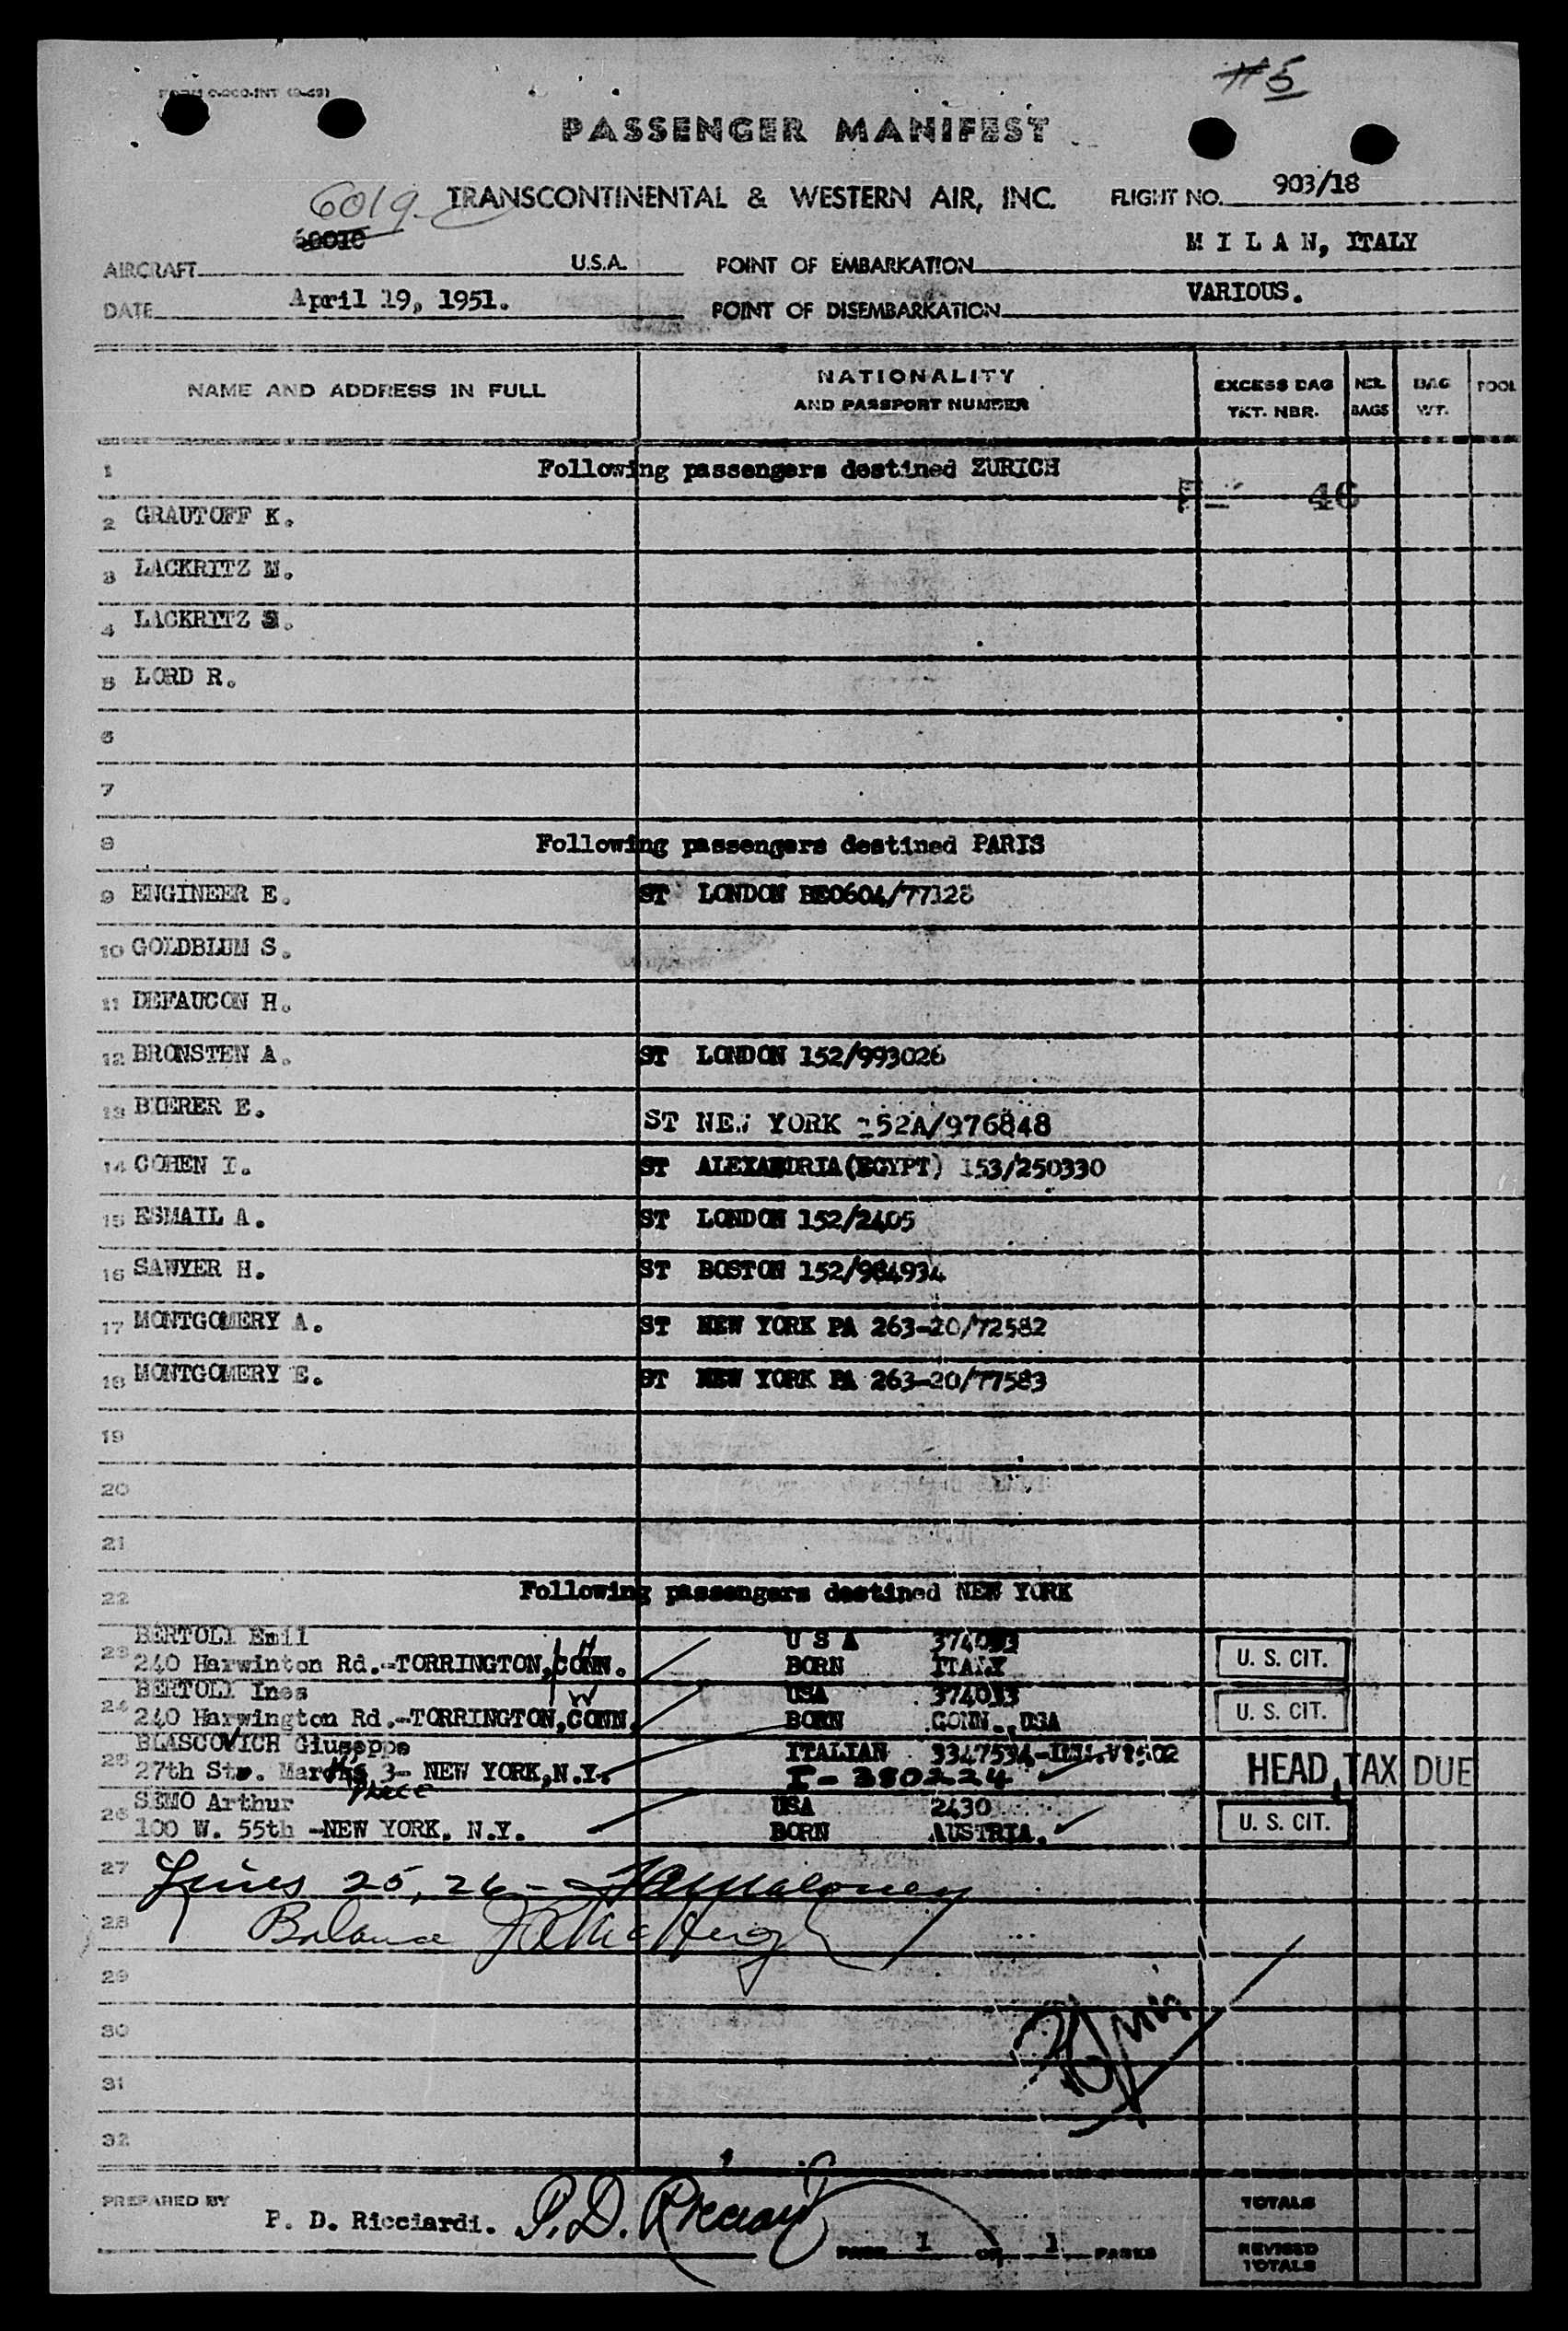 #5
PASSENGER MANIFEST
6019 TRANSCONTINENTAL & WESTERN AIR, INC. FLIGHT NO. 903/18
AIRCRAFT U.S.A. POINT OF EMBARKATION M I L A N, ITALY
DATE April 19, 1951. POINT OF DISEMBARKATION VARIOUS.
NAME AND ADDRESS IN FULL NATIONALITY AND PASSPORT NUMBER EXCESS BAG TKT. NBR. BAGS BAG WT. POOL
1 Following passengers destined ZURICH
46
2 GRAUTOFF K.
3 LACKRITZ M.
4 LACKRITZ S.
5 LORD R.
6
7
8 Following passengers destined PARIS
9 ENGINEER E. ST LONDON
10 GOLDBLUM S.
11 DEFAUCON H.
12 BRONSTEN A. ST LONDON 152/993026
13 BUERER E. ST NEW YORK 152A/976848
14 COHEN I. ST ALEXANDRIA(EGYPT) 153/250330
15 ESMAIL A. ST LONDON 152/2405
16 SAWYER H. ST BOSTON 152/984934
17 MONTGOMERY A. ST NEW YORK PA 263-20/72582
18 MONTGOMERY E. ST NEW YORK PA 263-20/77583
19
20
21
22 Following passengers destined NEW YORK
23 BERTOLI Emil U S A
240 Harwinton Rd.-TORRINGTON, CONN. BORN ITALY U. S. CIT.
24 BERTOLI Ines USA
240 Harwington Rd.-TORRINGTON, CONN. BORN CONN., USA U. S. CIT.
25 BLASCOVICH Giuseppe ITALIAN 3347534
27th St. Marks 3- NEW YORK, N.Y. I-380224 HEAD TAX DUE
Place
26 SEMO Arthur USA 2430
100 W. 55th -NEW YORK, N.Y. BORN AUSTRIA. U. S. CIT.
27 Lines 25, 26 - Maloney
28 Balance
29
30
31
32
PREPARED BY P. D. Ricciardi. P. D. Ricciardi
PAGE 1 OF 1 PAGES
TOTALS
REVISED TOTALS